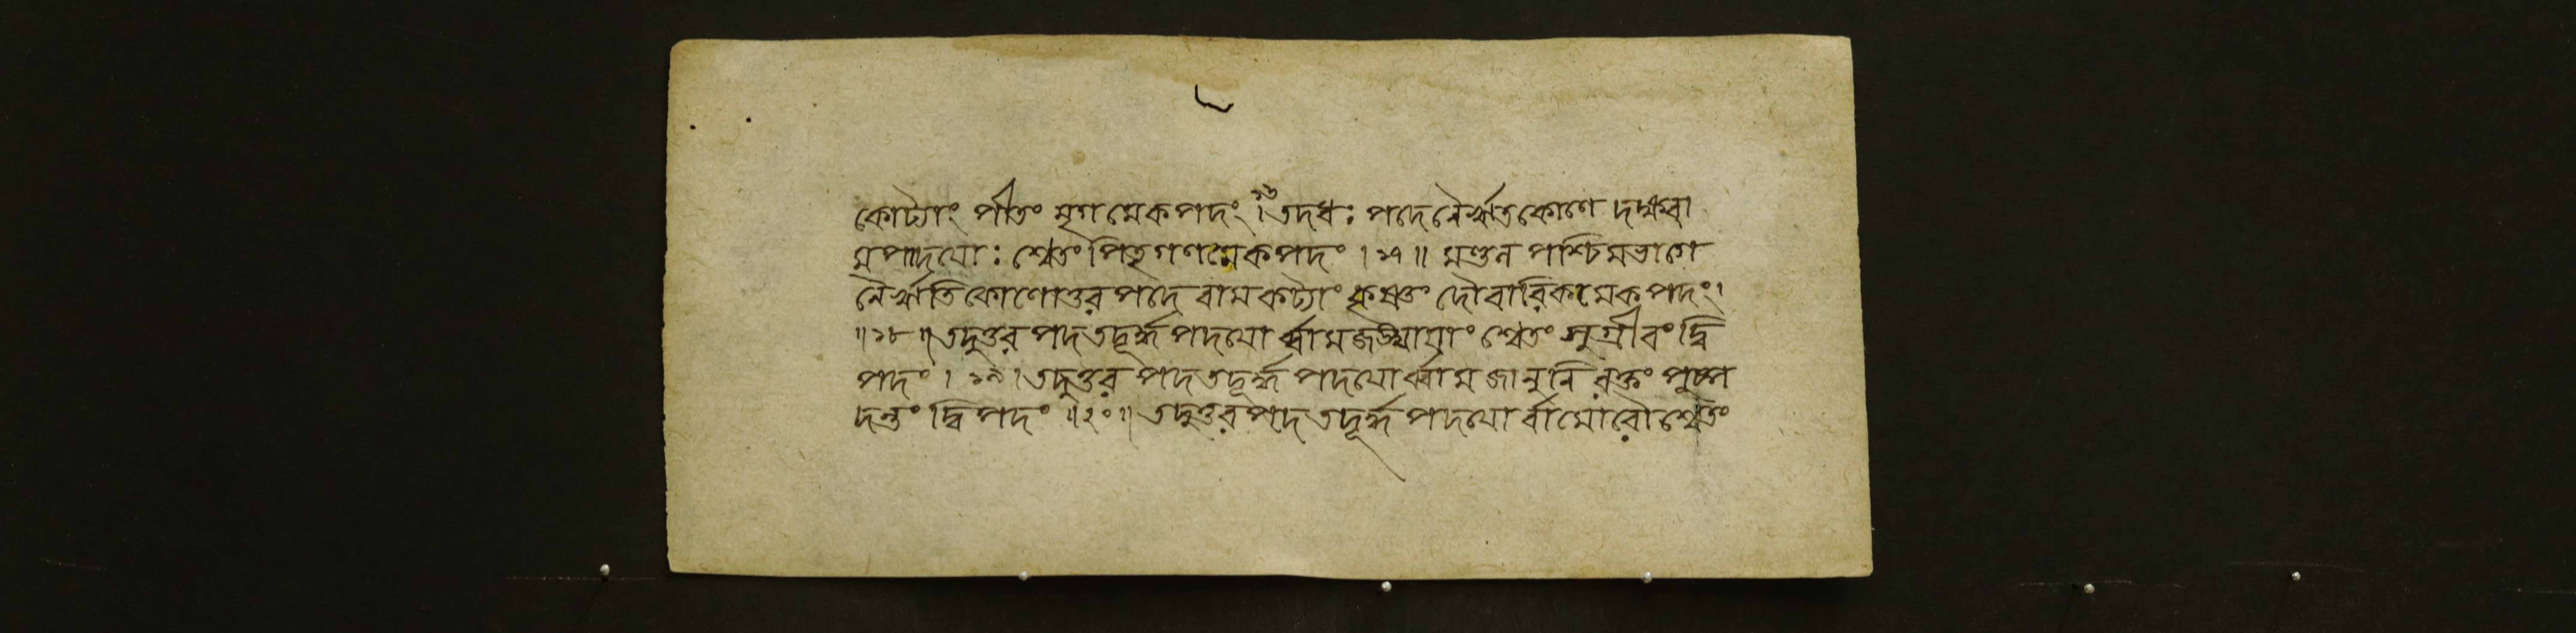 কোট্যাং পীতং মৃগমেকপদং ।১৬ তদধঃ পদে নৈর্ঋতকোণে দক্ষবা
মপাদয়োঃ শ্বেতং পিতৃগণমেকপদং । ১৭ ॥ মণ্ডল পশ্চিমভাগে
নৈর্ঋতিকোণোত্তর পদে বামকট্যাং কৃষ্ণং দৌবারিকমেকপদং ।
॥ ১৮ ॥ তদুত্তর পদ তদূর্দ্ধ পদয়োর্ব্বামজঙ্ঘায়াং শ্বেতং সুগ্রীবং দ্বি
পদং । ১৯ । তদুত্তর পদ তদূর্দ্ধ পদয়োর্ব্বামজানুনি রক্তং পুষ্প
দন্তং দ্বিপদং ॥ ২০ ॥ তদুত্তর পদ তদূর্দ্ধ পদয়োর্বামোরৌ শ্বেতং